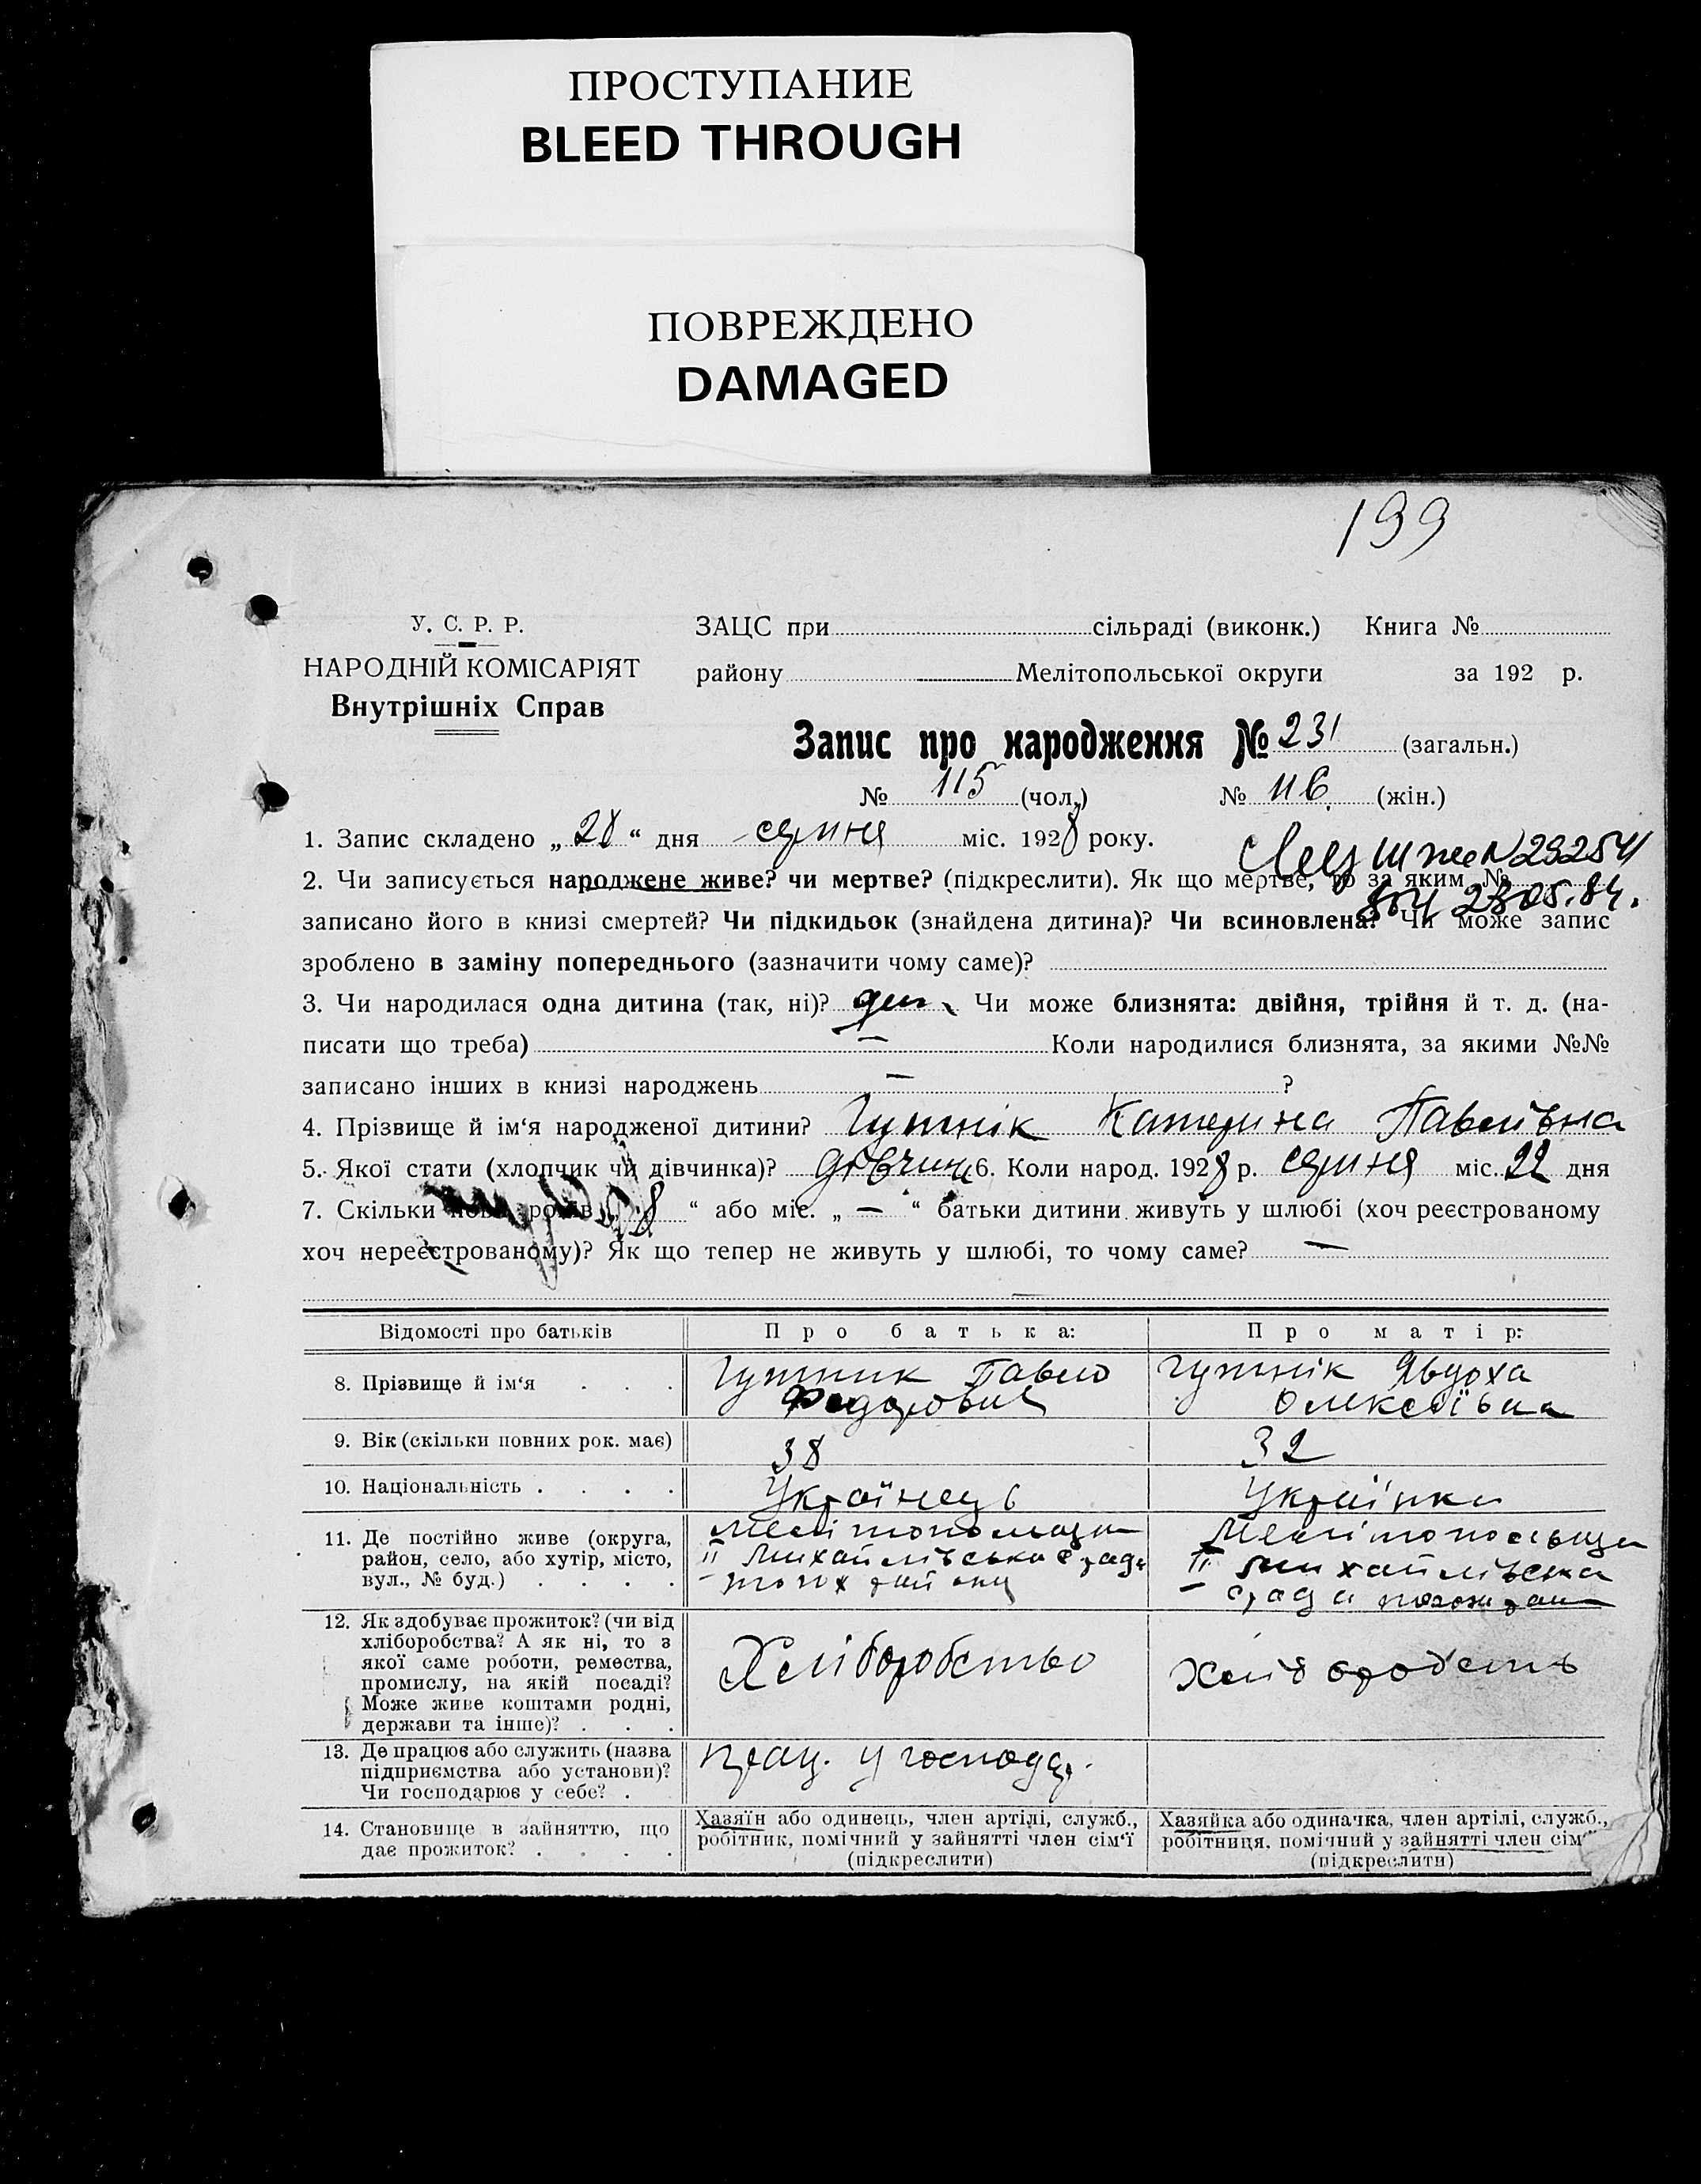 ПРОСТУПАНИЕ
BLEED THROUGH
ПОВРЕЖДЕНО
DAMAGED
199
У. С. Р. Р.
НАРОДНІЙ КОМІСАРІЯТ
Внутрішніх Справ
ЗАЦС при сільраді (виконк.) Книга №
району Мелітопольської округи за 192 р.
Запис про народження № 231 (загальн.)
№ 115 (чол.) № 116 (жін.)
1. Запис складено „ 28 “ дня серпня міс. 1928 року.
№ 292541
2. Чи записується народжене живе? чи мертве? (підкреслити). Як що мертве, то за яким №
23.05.84.
записано його в книзі смертей? Чи підкидьок (знайдена дитина)? Чи всиновлена? Чи може запис
зроблено в заміну попереднього (зазначити чому саме)?
3. Чи народилася одна дитина (так, ні)? Чи може близнята: двійня, трійня й т. д. (на-
писати що треба) — Коли народилися близнята, за якими №№
записано інших в книзі народжень — ?
4. Прізвище й ім‘я народженої дитини? Гутнік Катерина Павлівна
5. Якої стати (хлопчик чи дівчинка)? дівчин 6. Коли народ. 1928 р. серпня міс. 22 дня
7. Скільки повн. років „ 8 “ або міс. „ — “ батьки дитини живуть у шлюбі (хоч реєстрованому
хоч нереєстрованому)? Як що тепер не живуть у шлюбі, то чому саме? —
Відомості про батьків Про батька: Про матір:
8. Прізвище й ім‘я . . . Гутник Павло Федорович Гутнік Явдоха Олексіївна
9. Вік (скільки повних рок. має) 38 32
10. Національність . . . . Українець Українка
11. Де постійно живе (округа, район, село, або хутір, місто, вул., № буд.) . . . . Мелітопольщи II Михайлівська срада Мелітопольщи II Михайлівська срада
12. Як здобуває прожиток? (чи від хліборобства? А як ні, то з якої саме роботи, ремества, промислу, на якій посаді? Може живе коштами родні, держави та інше)? . . . Хліборобство Хліборобств
13. Де працює або служить (назва підприємства або установи)? Чи господарює у себе? . Прац. у господ.
14. Становище в зайняттю, що дає прожиток? . . . . Хазяїн або одинець, член артілі, служб., робітник, помічний у зайнятті член сім‘ї (підкреслити) Хазяйка або одиначка, член артілі, служб., робітниця, помічний у зайнятті член сім‘ї (підкреслити)